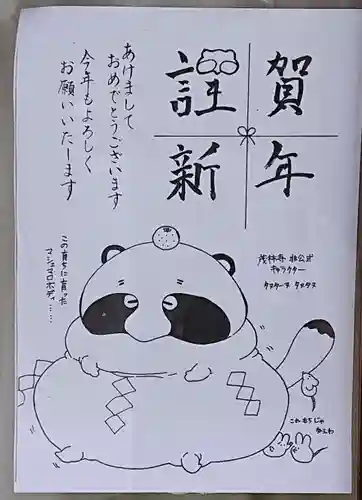 謹賀
新年
あけまして
おめでとうございます
今年もよろしく
お願いいたーます
この育ちに育った
マシュマロボディ……
茂林寺 非公式
キャラクター
これもちじゃ
ねぇわ